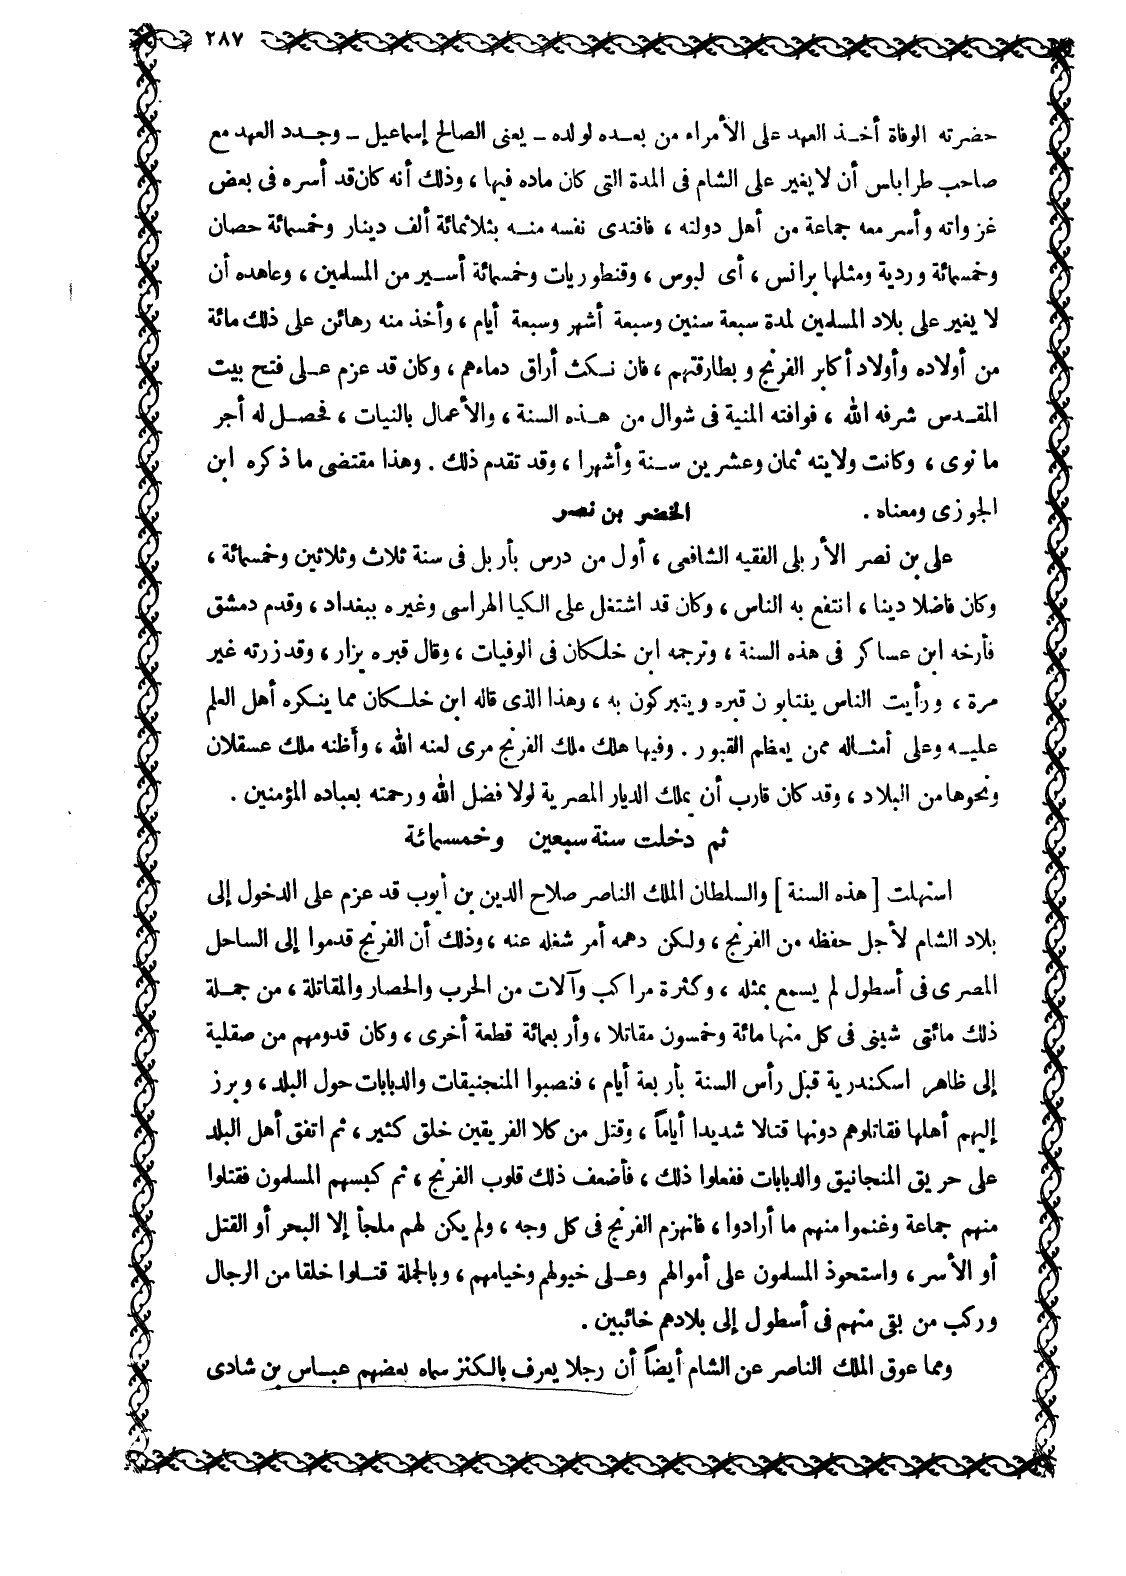 ٢٨٧
حضرته الوفاة أخذ العهد على الأمراء من بعده لولده - يعنى الصالح إسماعيل - وجدد العهد مع
صاحب طرابلس أن لا يغير على الشام فى المدة التى كان ماده فيها ، وذلك أنه كان قد أسره فى بعض
غزواته وأسر معه جماعة من أهل دولته ، فافتدى نفسه منه بثلاثمائة ألف دينار وخمسمائة حصان
وخمسمائة وردية ومثلها برانس ، أى لبوس ، وقنطوريات وخمسمائة أسير من المسلمين ، وعاهده أن
لا يغير على بلاد المسلمين لمدة سبعة سنين وسبعة أشهر وسبعة أيام ، وأخذ منه رهائن على ذلك مائة
من أولاده وأولاد أكابر الفرنج وبطارقتهم ، فان نكث أراق دماءهم ، وكان قد عزم على فتح بيت
المقدس شرفه الله ، فوافته المنية فى شوال من هذه السنة ، والأعمال بالنيات ، فحصل له أجر
ما نوى ، وكانت ولايته ثمان وعشرين سنة وأشهرا ، وقد تقدم ذلك . وهذا مقتضى ما ذكره ابن
الجوزى ومعناه . الخضر بن نصر
على بن نصر الأربلى الفقيه الشافعى ، أول من درس بأربل فى سنة ثلاث وثلاثين وخمسمائة ،
وكان فاضلا دينا ، انتفع به الناس ، وكان قد اشتغل على الكيا الهراسى وغيره ببغداد ، وقدم دمشق
فأرخه ابن عساكر فى هذه السنة ، وترجمه ابن خلكان فى الوفيات ، وقال قبره يزار ، وقد زرته غير
مرة ، ورأيت الناس ينتابون قبره ويتبركون به ، وهذا الذى قاله ابن خلكان مما ينكره أهل العلم
عليه وعلى أمثاله ممن يعظم القبور . وفيها هلك ملك الفرنج مرى لعنه الله ، وأظنه ملك عسقلان
ونحوها من البلاد ، وقد كان قارب أن يملك الديار المصرية لولا فضل الله ورحمته بعباده المؤمنين .
ثم دخلت سنة سبعين وخمسمائة
استهلت [ هذه السنة ] والسلطان الملك الناصر صلاح الدين بن أيوب قد عزم على الدخول إلى
بلاد الشام لأجل حفظه من الفرنج ، ولكن دهمه أمر شغله عنه ، وذلك أن الفرنج قدموا إلى الساحل
المصرى فى أسطول لم يسمع بمثله ، وكثرة مراكب وآلات من الحرب والحصار والمقاتلة ، من جملة
ذلك مائتى شينى فى كل منها مائة وخمسون مقاتلا ، وأربعمائة قطعة أخرى ، وكان قدومهم من صقلية
إلى ظاهر اسكندرية قبل رأس السنة بأربعة أيام ، فنصبوا المنجنيقات والدبابات حول البلد ، وبرز
إليهم أهلها فقاتلوهم دونها قتالا شديدا أياماً ، وقتل من كلا الفريقين خلق كثير ، ثم اتفق أهل البلد
على حريق المنجانيق والدبابات ففعلوا ذلك ، فأضعف ذلك قلوب الفرنج ، ثم كبسهم المسلمون فقتلوا
منهم جماعة وغنموا منهم ما أرادوا ، فانهزم الفرنج فى كل وجه ، ولم يكن لهم ملجأ إلا البحر أو القتل
أو الأسر ، واستحوذ المسلمون على أموالهم وعلى خيولهم وخيامهم ، وبالجملة قتلوا خلقا من الرجال
وركب من بقى منهم فى أسطول إلى بلادهم خائبين .
ومما عوق الملك الناصر عن الشام أيضاً أن رجلا يعرف بالكنز سماه بعضهم عباس بن شادى